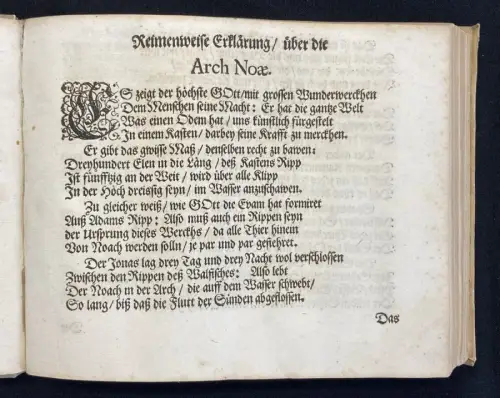 Reimenweise Erklärung / über die
Arch Noæ.
ES zeigt der höchste GOtt / mit grossen Wunderwerckhen
Dem Menschen seine Macht: Er hat die gantze Welt
Was einen Odem hat / uns künstlich fürgestelt
In einem Kasten / darbey seine Krafft zu merckhen.
Er gibt das gwisse Maß / denselben recht zu bawen:
Dreyhundert Elen in die Läng / deß Kastens Ripp
Ist fünfftzig an der Weit / wird über alle Klipp
In der Höch dreissig seyn / im Wasser anzuschawen.
Zu gleicher weiß / wie GOtt die Evam hat formiret
Auß Adams Ripp: Also muß auch ein Rippen seyn
der Ursprung dieses Werckhs / da alle Thier hinein
Von Noach werden solln / je par und par geführet.
Der Jonas lag drey Tag und drey Nacht wol verschlossen
Zwischen den Rippen deß Walfisches: Also lebt
Der Noach in der Arch / die auff dem Wasser schwebt /
So lang / biß daß die Flutt der Sünden abgeflossen.
Das